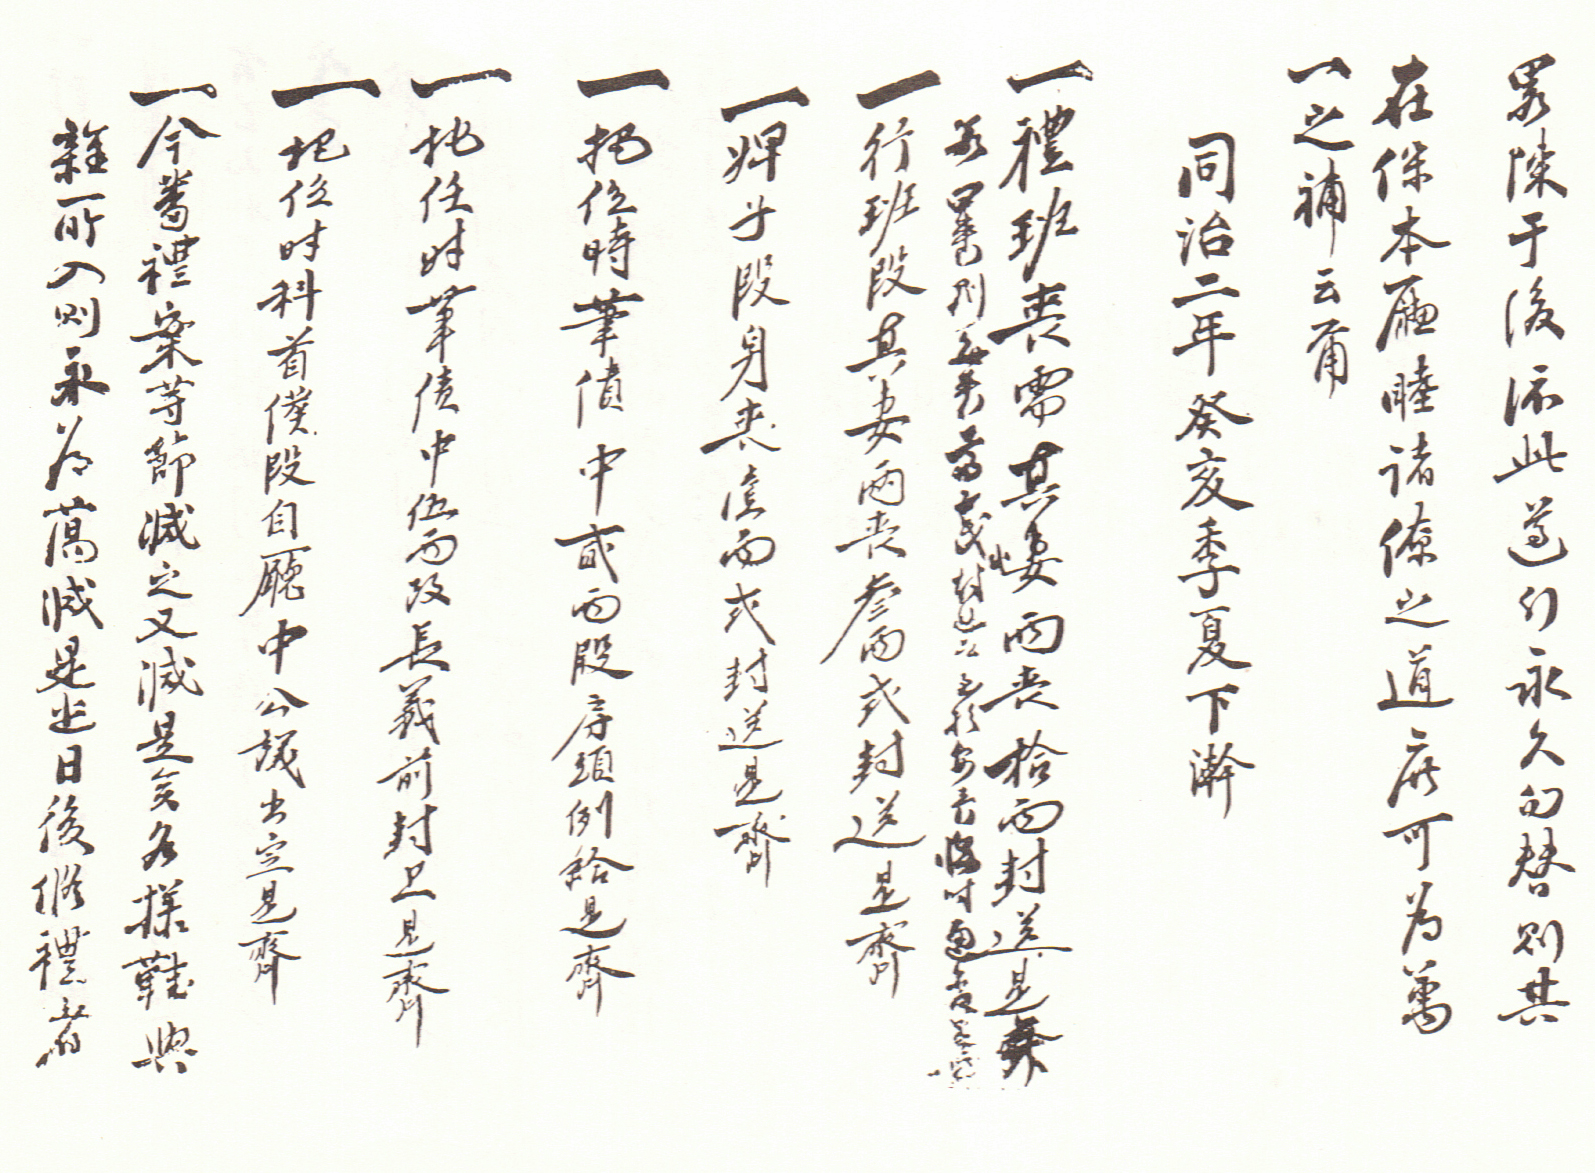 畧陳于後依此遵行永久勿替則其
在保本廳睦諸僚之道庶可爲萬
一之補云爾
同治二年癸亥季夏下澣
一禮班喪需其妻兩喪拾兩封送是齊
一行班段其妻兩喪叄兩式封送是齊
一婢子段身喪壹兩式封送是齊
一把位時筆債中貳兩段房頭例給是齊
一把任時筆債中伍兩段長義前封上是齊
一把位時科首僕段自廳中公議出定是齊
一今番禮案等節減之又減是矣各樣鞋與
雜所入則永爲蕩減是遣日後修禮者